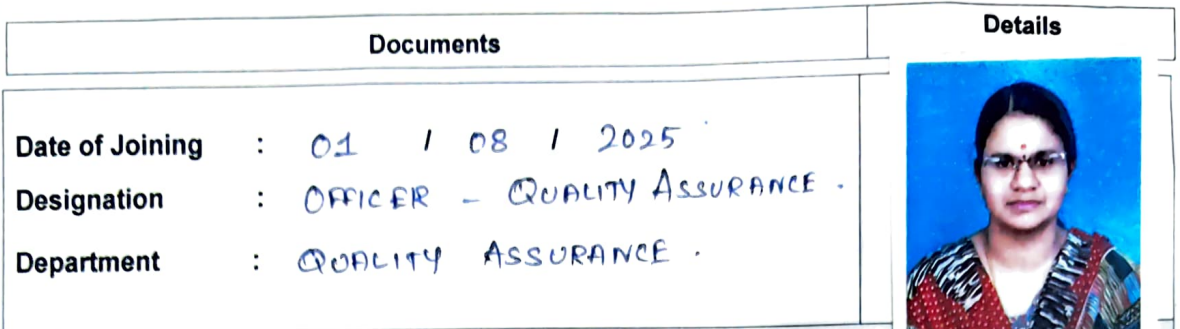 Documents
Details
Date of Joining : 01 / 08 / 2025
Designation : OFFICER - QUALITY ASSURANCE .
Department : QUALITY ASSURANCE .